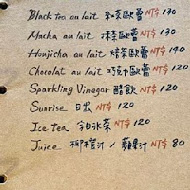 Black tea au lait 紅茶歐蕾 NT$ 130
Macha au lait 抹茶歐蕾 NT$ 120
Houjicha au lait 焙茶歐蕾 NT$ 140
Chocolat au lait 巧克力歐蕾 NT$ 120
Sparkling Vinegar 醋飲 NT$ 120
Sunrise 日出 NT$ 120
Ice tea 今日冰茶 NT$ 120
Juice 柳橙汁 / 蘋果汁 NT$ 80